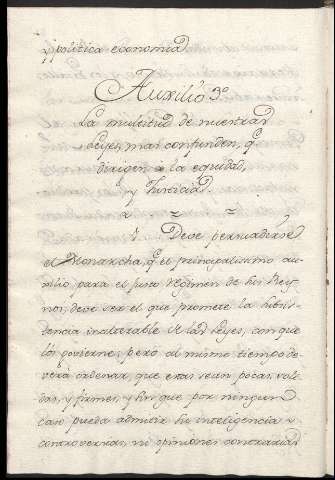 y política economía
Auxilio 3º
La multitud de nuestras
Leyes, mas confunden, q.
dirigen a la equidad,
y Justicia.
1 Deve persuadirse
el Monarcha, q. el principalissimo au-
xilio para el justo regimen de sus Rey-
nos, deve ser el que promete la subsis-
tencia inalterable de las Leyes, con que
los govierne; pero al mismo tiempo de-
verá ordenar, que estas sean pocas, vali-
das, y firmes, y sin que por ningun
caso pueda admitir su inteligencia
controversias, ni opiniones contrarias